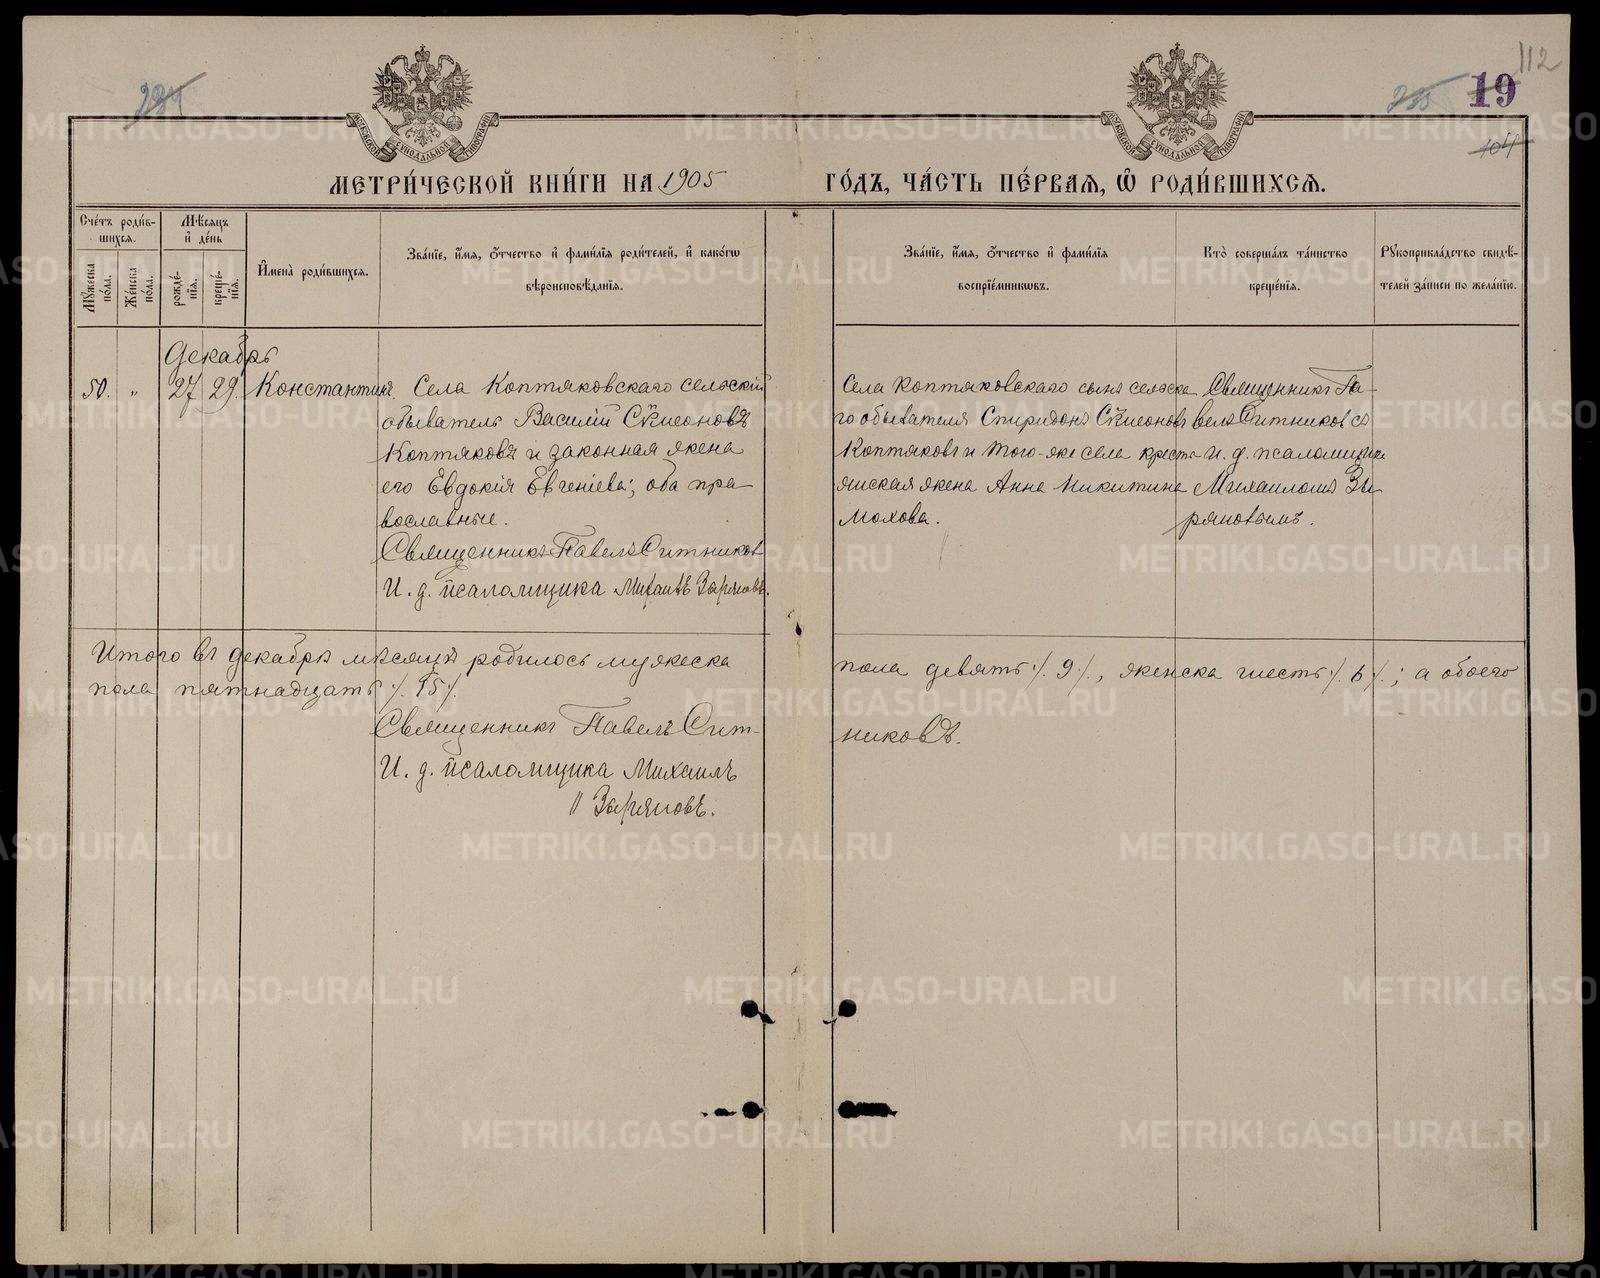 234
235
19
112
104
МОСКОВСКОЙ СѴНОДАЛЬНОЙ ТИПОГРАФІИ
МОСКОВСКОЙ СѴНОДАЛЬНОЙ ТИПОГРАФІИ
МЕТРИ́ЧЕСКОЙ КНИ́ГИ НА 1905 ГО́ДЪ, ЧА́СТЬ ПЕ́РВАЯ, Ѽ РОДИ́ВШИХСЯ.
Сче́тъ роди́в-
шихся.
Мѣ́сяцъ
и҆ де́нь
Мꙋ́жеска
по́ла.
Же́нска
по́ла.
рожде́-
нїѧ.
креще́-
нїѧ.
И҆мена̀ роди́вшихся.
Зва́нїе, и҆́мя, ѻ҆́тчество и҆ фами́лїѧ роди́телей, и҆ како́гѡ
вѣроисповѣ́данїѧ.
Зва́нїе, и҆́мя, ѻ҆́тчество и҆ фами́лїѧ
воспрїе́мникѡвъ.
Кто̀ соверша́лъ та́инство
креще́нїѧ.
Рꙋкоприкла́дство свидѣ́-
телей за́писи по жела́нїю.
Декабрь
50. „ 27 29. Константинъ.
Села Коптяковскаго сельскій
обыватель Василій Сѷмеоновъ
Коптяковъ и законная жена
его Евдокія Евгеніева; оба пра-
вославные.
Священникъ Павелъ Ситниковъ
И. д. псаломщика Михаилъ Зыряновъ.
Села Коптяковскаго сынъ сельска
го обывателя Спиридонъ Сѷмеоновъ
Коптяковъ и того-же села кресть-
янская жена Анна Никитина
Мохова.
Священникъ Па-
велъ Ситниковъ съ
и. д. псаломщика
Михаиломъ Зы-
ряновымъ.
Итого въ декабрѣ мѣсяцѣ родилось мужеска пола девять ·/. 9 ·/., женска шесть ·/. 6 ·/.; а обоего
пола пятнадцать ·/. 15 ·/.
Священникъ Павелъ Ситниковъ.
И. д. псаломщика Михаилъ
Зыряновъ.
METRIKI.GASO-URAL.RU